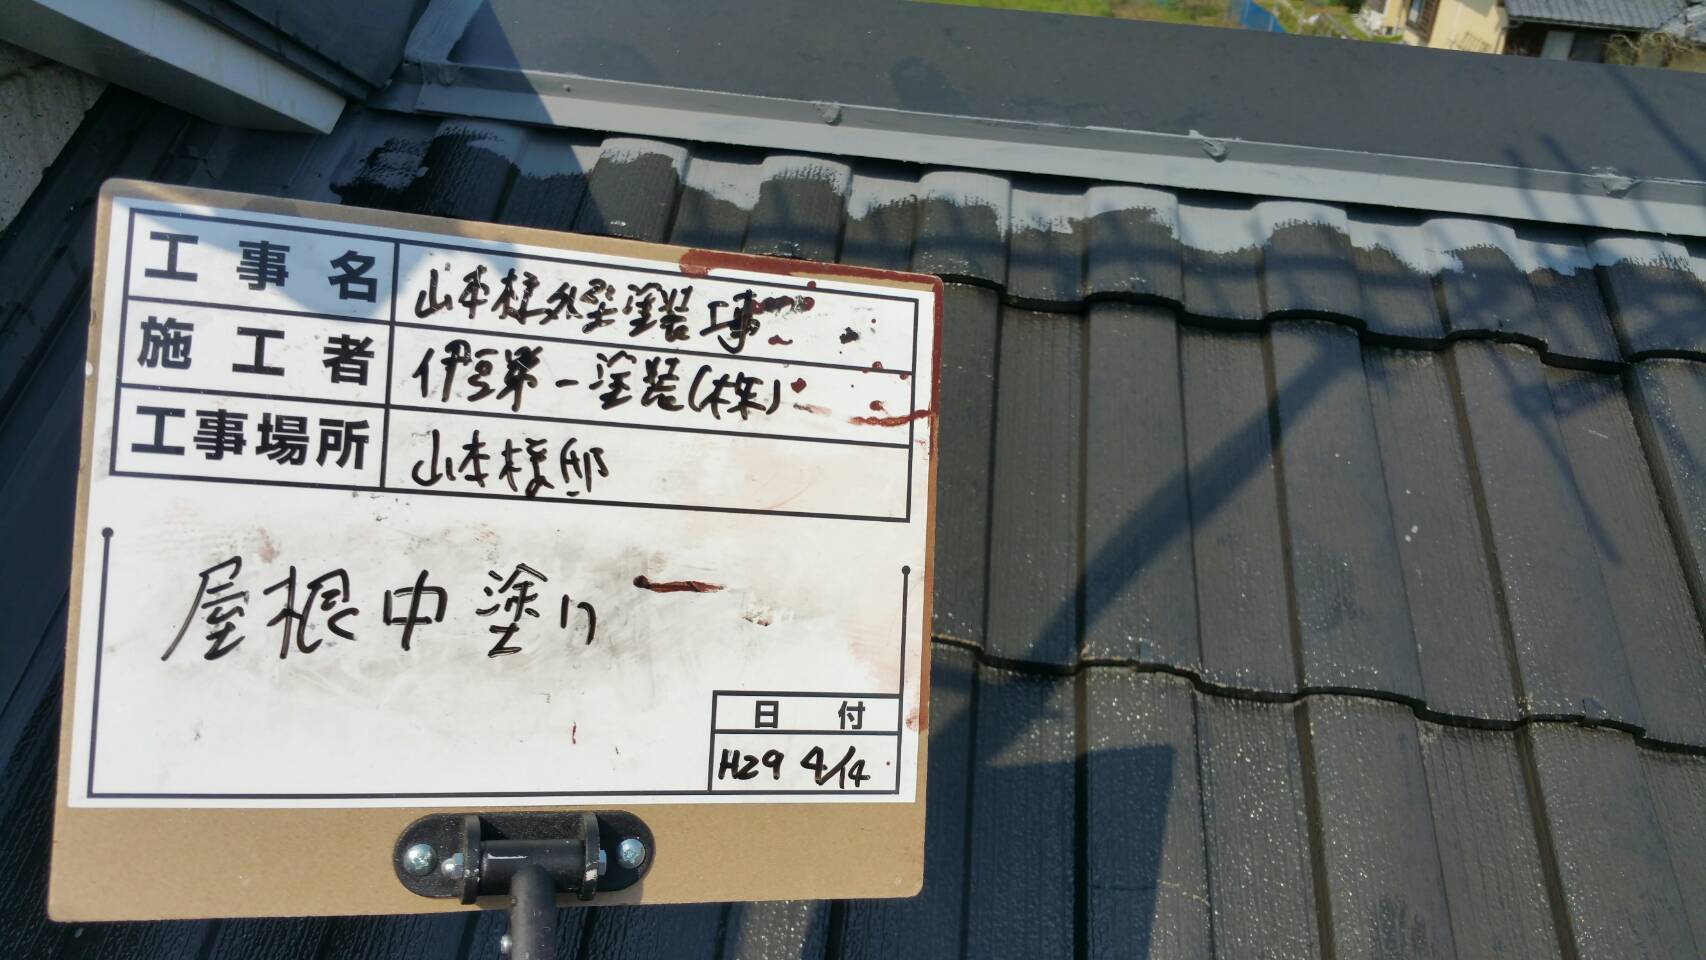 工事名 山本様外壁塗装工事
施工者 伊豆第一塗装(株)
工事場所 山本様邸
屋根中塗り
日付
H29 4/14